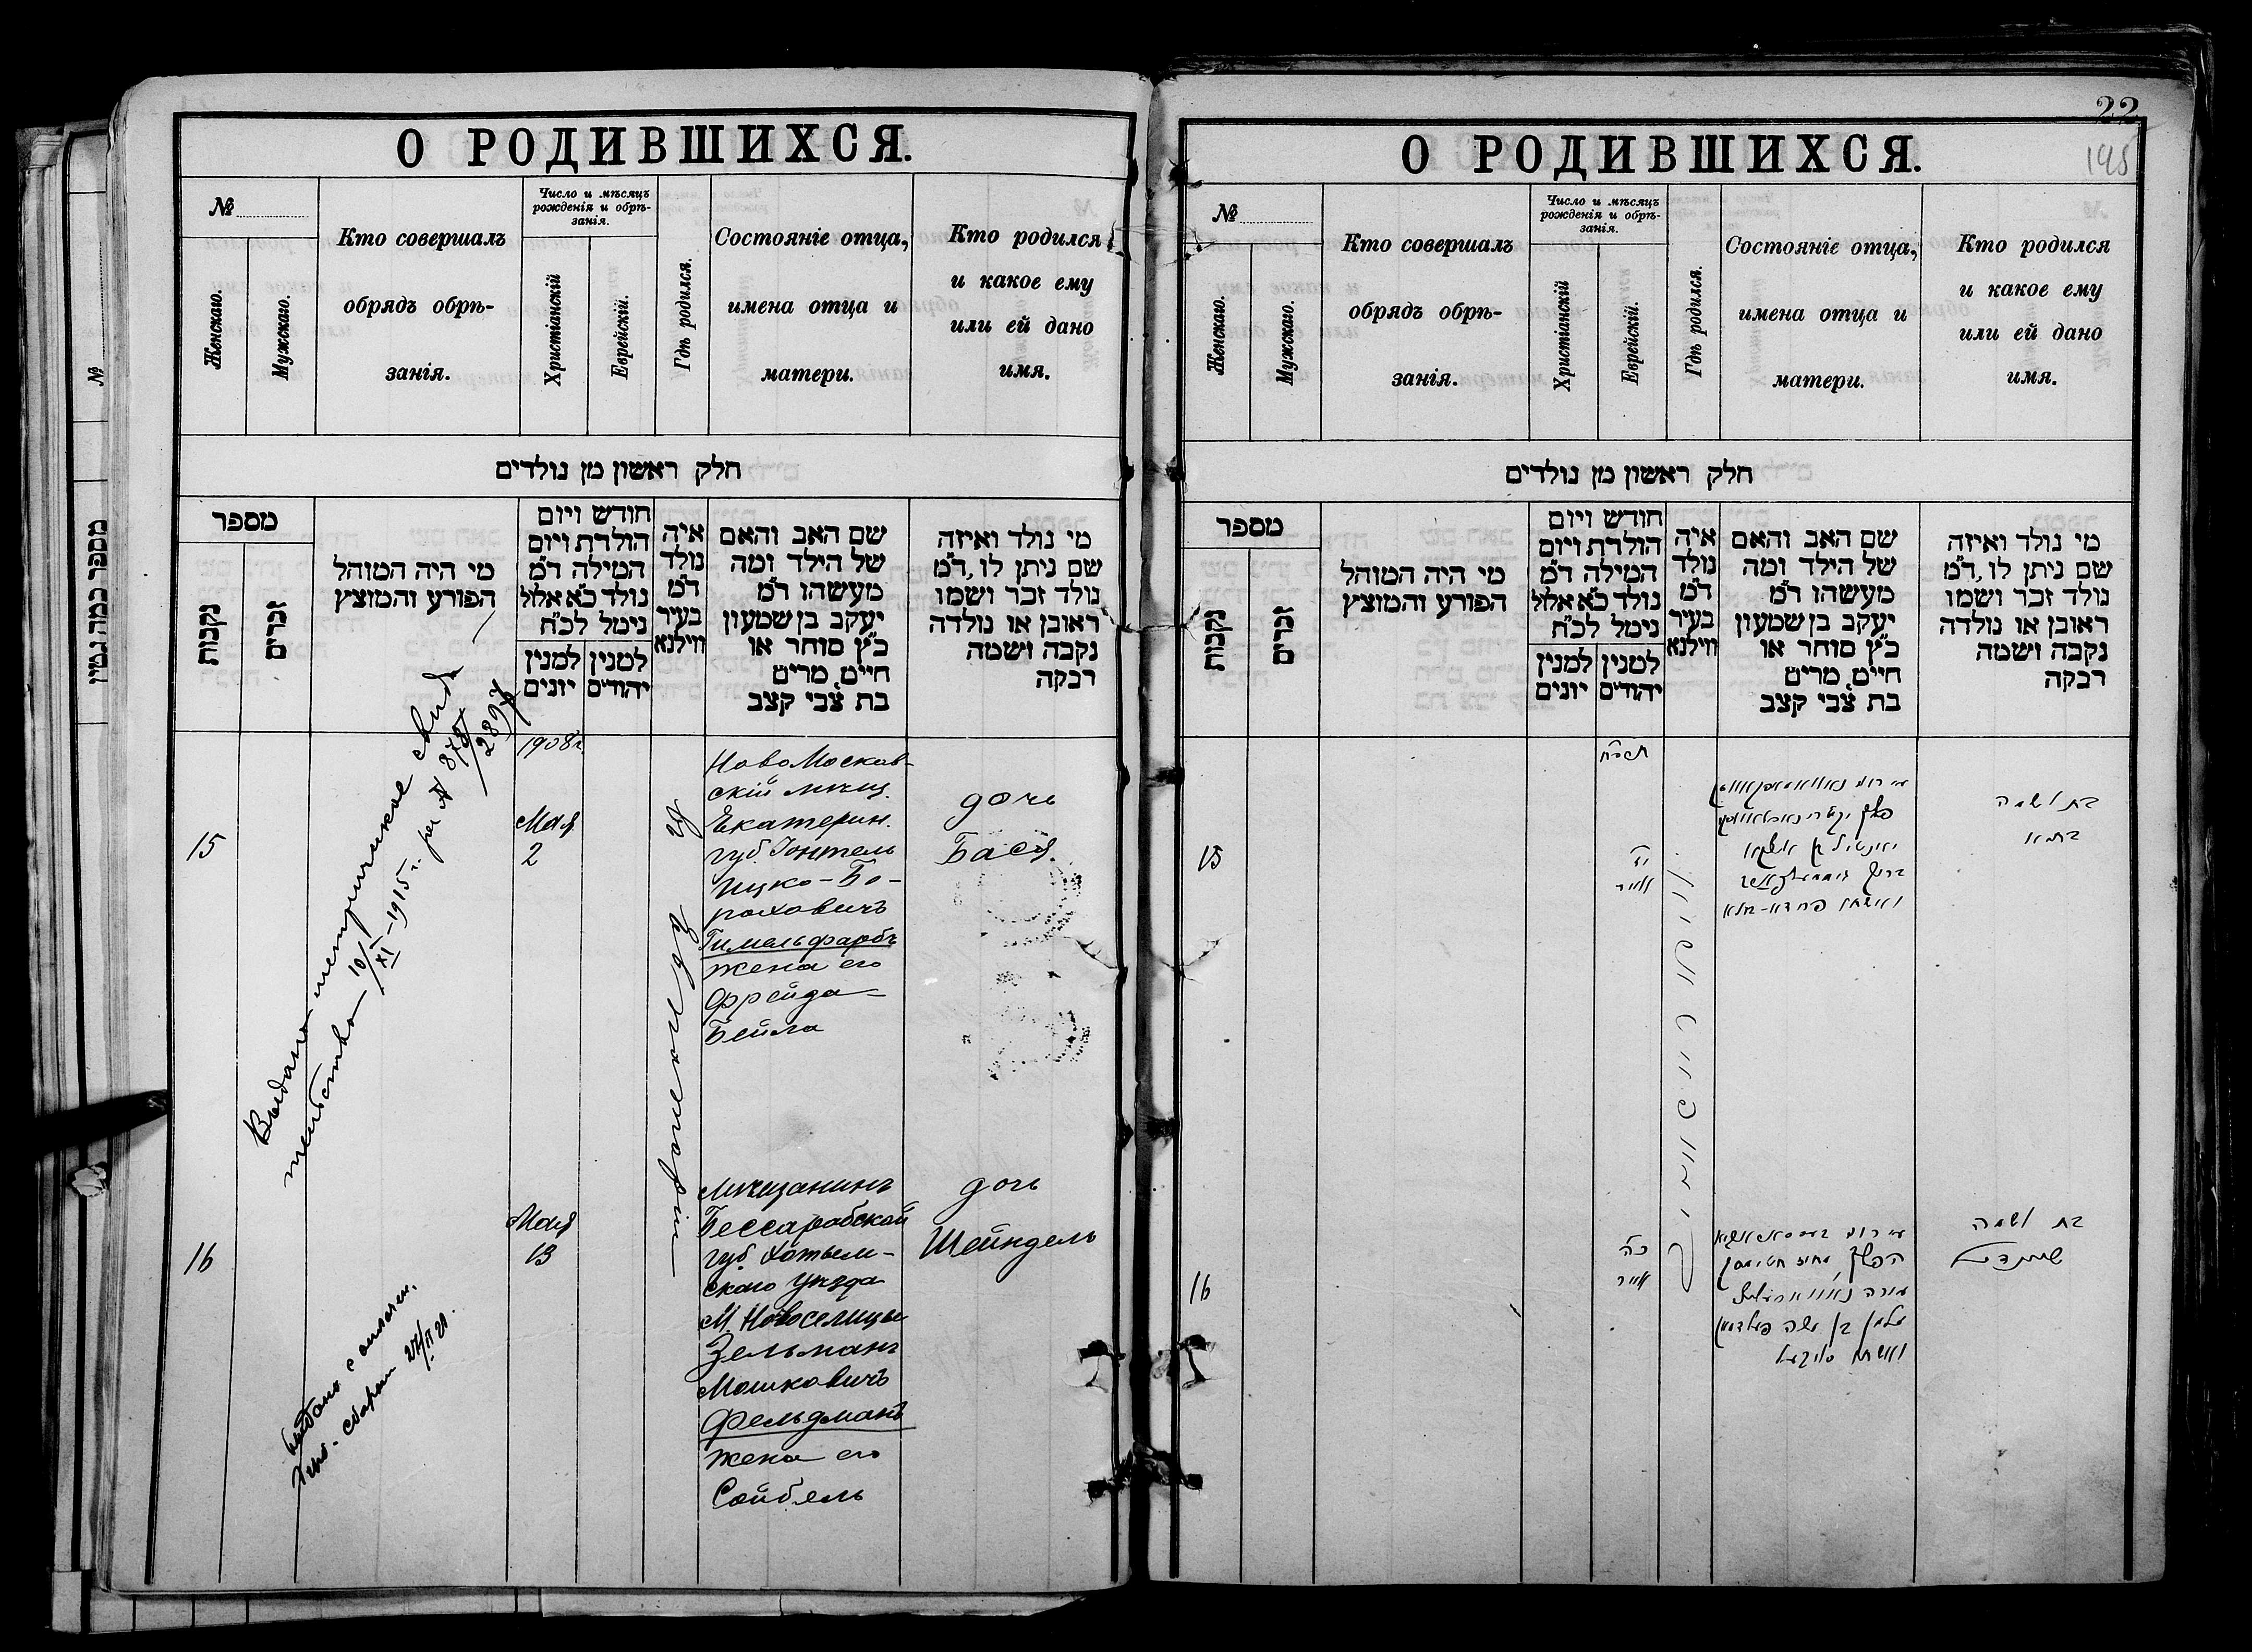 О РОДИВШИХСЯ.
№
Женскаго.
Мужскаго.
Кто совершалъ
обрядъ обрѣ-
занія.
Число и мѣсяцъ
рожденія и обрѣ-
занія.
Христіанскій
Еврейскій.
Гдѣ родился.
Состояніе отца,
имена отца и
матери.
Кто родился
и какое ему
или ей дано
имя.
חלק ראשון מן נולדים
מספר
נקבות
זכרים
מי היה המוהל
הפורע והמוצץ
חודש ויום
הולדת ויום
המילה ד״מ
נולד כ״א אלול
נימל לכ״ח
למנין
יהודים
למנין
יונים
איה
נולד
ד״מ
בעיר
ווילנא
שם האב והאם
של הילד ומה
מעשהו ד״מ
יעקב בן שמעון
כ״ץ סוחר או
חיים, מרים
בת צבי קצב
מי נולד ואיזה
שם ניתן לו, ד״מ
נולד זכר ושמו
ראובן או נולדה
נקבה ושמה
רבקה
15
Выдано метрическое свидѣ
тельство 10/XI-1915 г. рег № 878/2897
1908 г.
Мая
2
Ново Москов-
скій мѣщ.
Екатерин.
губ. Іонтель
Ицко-Бо-
роховичъ
Гимельфарбъ
жена его
Фрейда-
Бейла
дочь
Бася.
16
Мая
13
мѣщанинъ
Бессарабской
губ. Хотин-
скаго уѣзда
М. Новоселицы
Зельманъ
Мошковичъ
Фельдманъ
жена его
Сойбель
дочь
Шейндель
22
195
О РОДИВШИХСЯ.
№
Женскаго.
Мужскаго.
Кто совершалъ
обрядъ обрѣ-
занія.
Число и мѣсяцъ
рожденія и обрѣ-
занія.
Христіанскій
Еврейскій.
Гдѣ родился.
Состояніе отца,
имена отца и
матери.
Кто родился
и какое ему
или ей дано
имя.
חלק ראשון מן נולדים
מספר
נקבות
זכרים
מי היה המוהל
הפורע והמוצץ
חודש ויום
הולדת ויום
המילה ד״מ
נולד כ״א אלול
נימל לכ״ח
למנין
יהודים
למנין
יונים
איה
נולד
ד״מ
בעיר
ווילנא
שם האב והאם
של הילד ומה
מעשהו ד״מ
יעקב בן שמעון
כ״ץ סוחר או
חיים, מרים
בת צבי קצב
מי נולד ואיזה
שם ניתן לו, ד״מ
נולד זכר ושמו
ראובן או נולדה
נקבה ושמה
רבקה
15
תרס״ח
אייר
בת ושמה
16
כ״ה
אייר
זלמן בן משה פעלדמאן
ואשתו
בת ושמה
שיינדעל